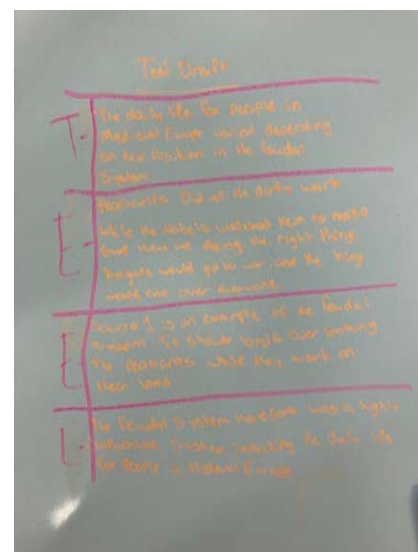 Teel Draft
T- The daily life for people in
Medieval Europe varied depending
on their Position in the feudal
System
E- Peasants Did all the work
While the Nobels watched them to make
Sure they are doing the right thing
Knights would go to war and the King
would over everyone
E Source 1 is an example of the feudal
System. It shows lords over looking
The Peasants while they work on
their land
L- The Feudal System therefore was a highly
System the daily life
for People in Europe